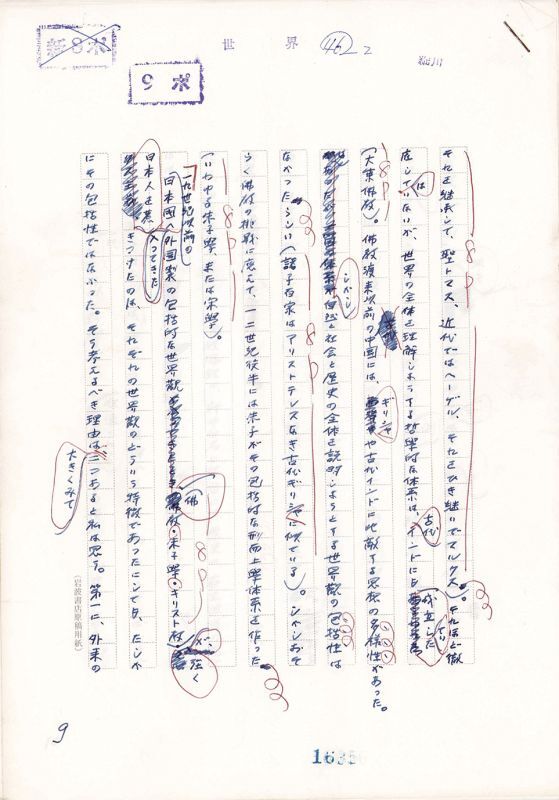 新8ポ
9ポ
世界
462
2
それを継承して、聖トマス、近代ではヘーゲル、それをひき継いでマルクス)。それほど徹
底してはいないが、世界の全体を理解しようとする哲学的な体系は、古代インドにも成立した
(大乗佛教)。佛教渡来以前の中国には、ギリシャや古代インドに比敵する思想の多様性があった。
しかし自然と社会と歴史の全体を説明しようとする世界観の包括性は
なかったらしい(諸子百家はアリストテレスなき古代ギリシャに似ている)。しかしおそ
らく佛教の挑戦に応えて、一二世紀後半には朱子がその包括的な形而上學体系を作った
(いわゆる朱子學、または宋學)。
一九世紀以前の
日本國へ入ってきた外国製の包括的な世界観(佛教・朱子學・キリスト教)が、強く
日本人を惹きつけたのは、それぞれの世界観のどういう特徴であったにしても、たしか
にその包括性ではなかった。そう考えるべき理由は大きくみて二つあると私は思う。第一に、外来の
(岩波書店原稿用紙)
9
1635